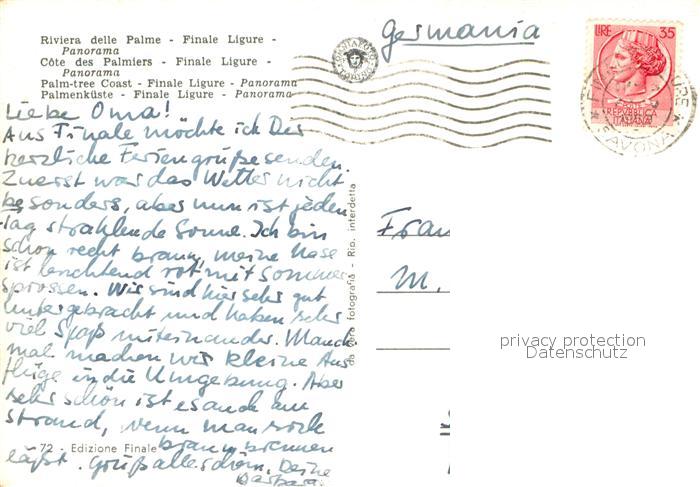 Riviera delle Palme - Finale Ligure -
Panorama
Côte des Palmiers - Finale Ligure -
Panorama
Palm-tree Coast - Finale Ligure - Panorama
Palmenküste - Finale Ligure - Panorama
Germania
LIRE 35
REPVBBLICA
ITALIANA
SAVONA
Liebe Oma!
Aus Finale möchte ich Dir
herzliche Feriengrüße senden.
Zuerst war das Wetter nicht
besonders, aber nun ist jeden
Tag strahlende Sonne. Ich bin
schon recht braun, meine Nase
ist leuchtend rot mit Sommer
sprossen. Wir sind hier sehr gut
untergebracht und haben sehr
viel Spaß miteinander. Manch
mal machen wir kleine Aus
flüge in die Umgebung. Aber
sehr schön ist es auch am
Strand, wenn man sich
braun brennen
läßt. Grüß alle schön. Deine
Barbara
72 - Edizione Finale
da vera fotografia - Rip. interdetta
Frau
M.
privacy protection
Datenschutz